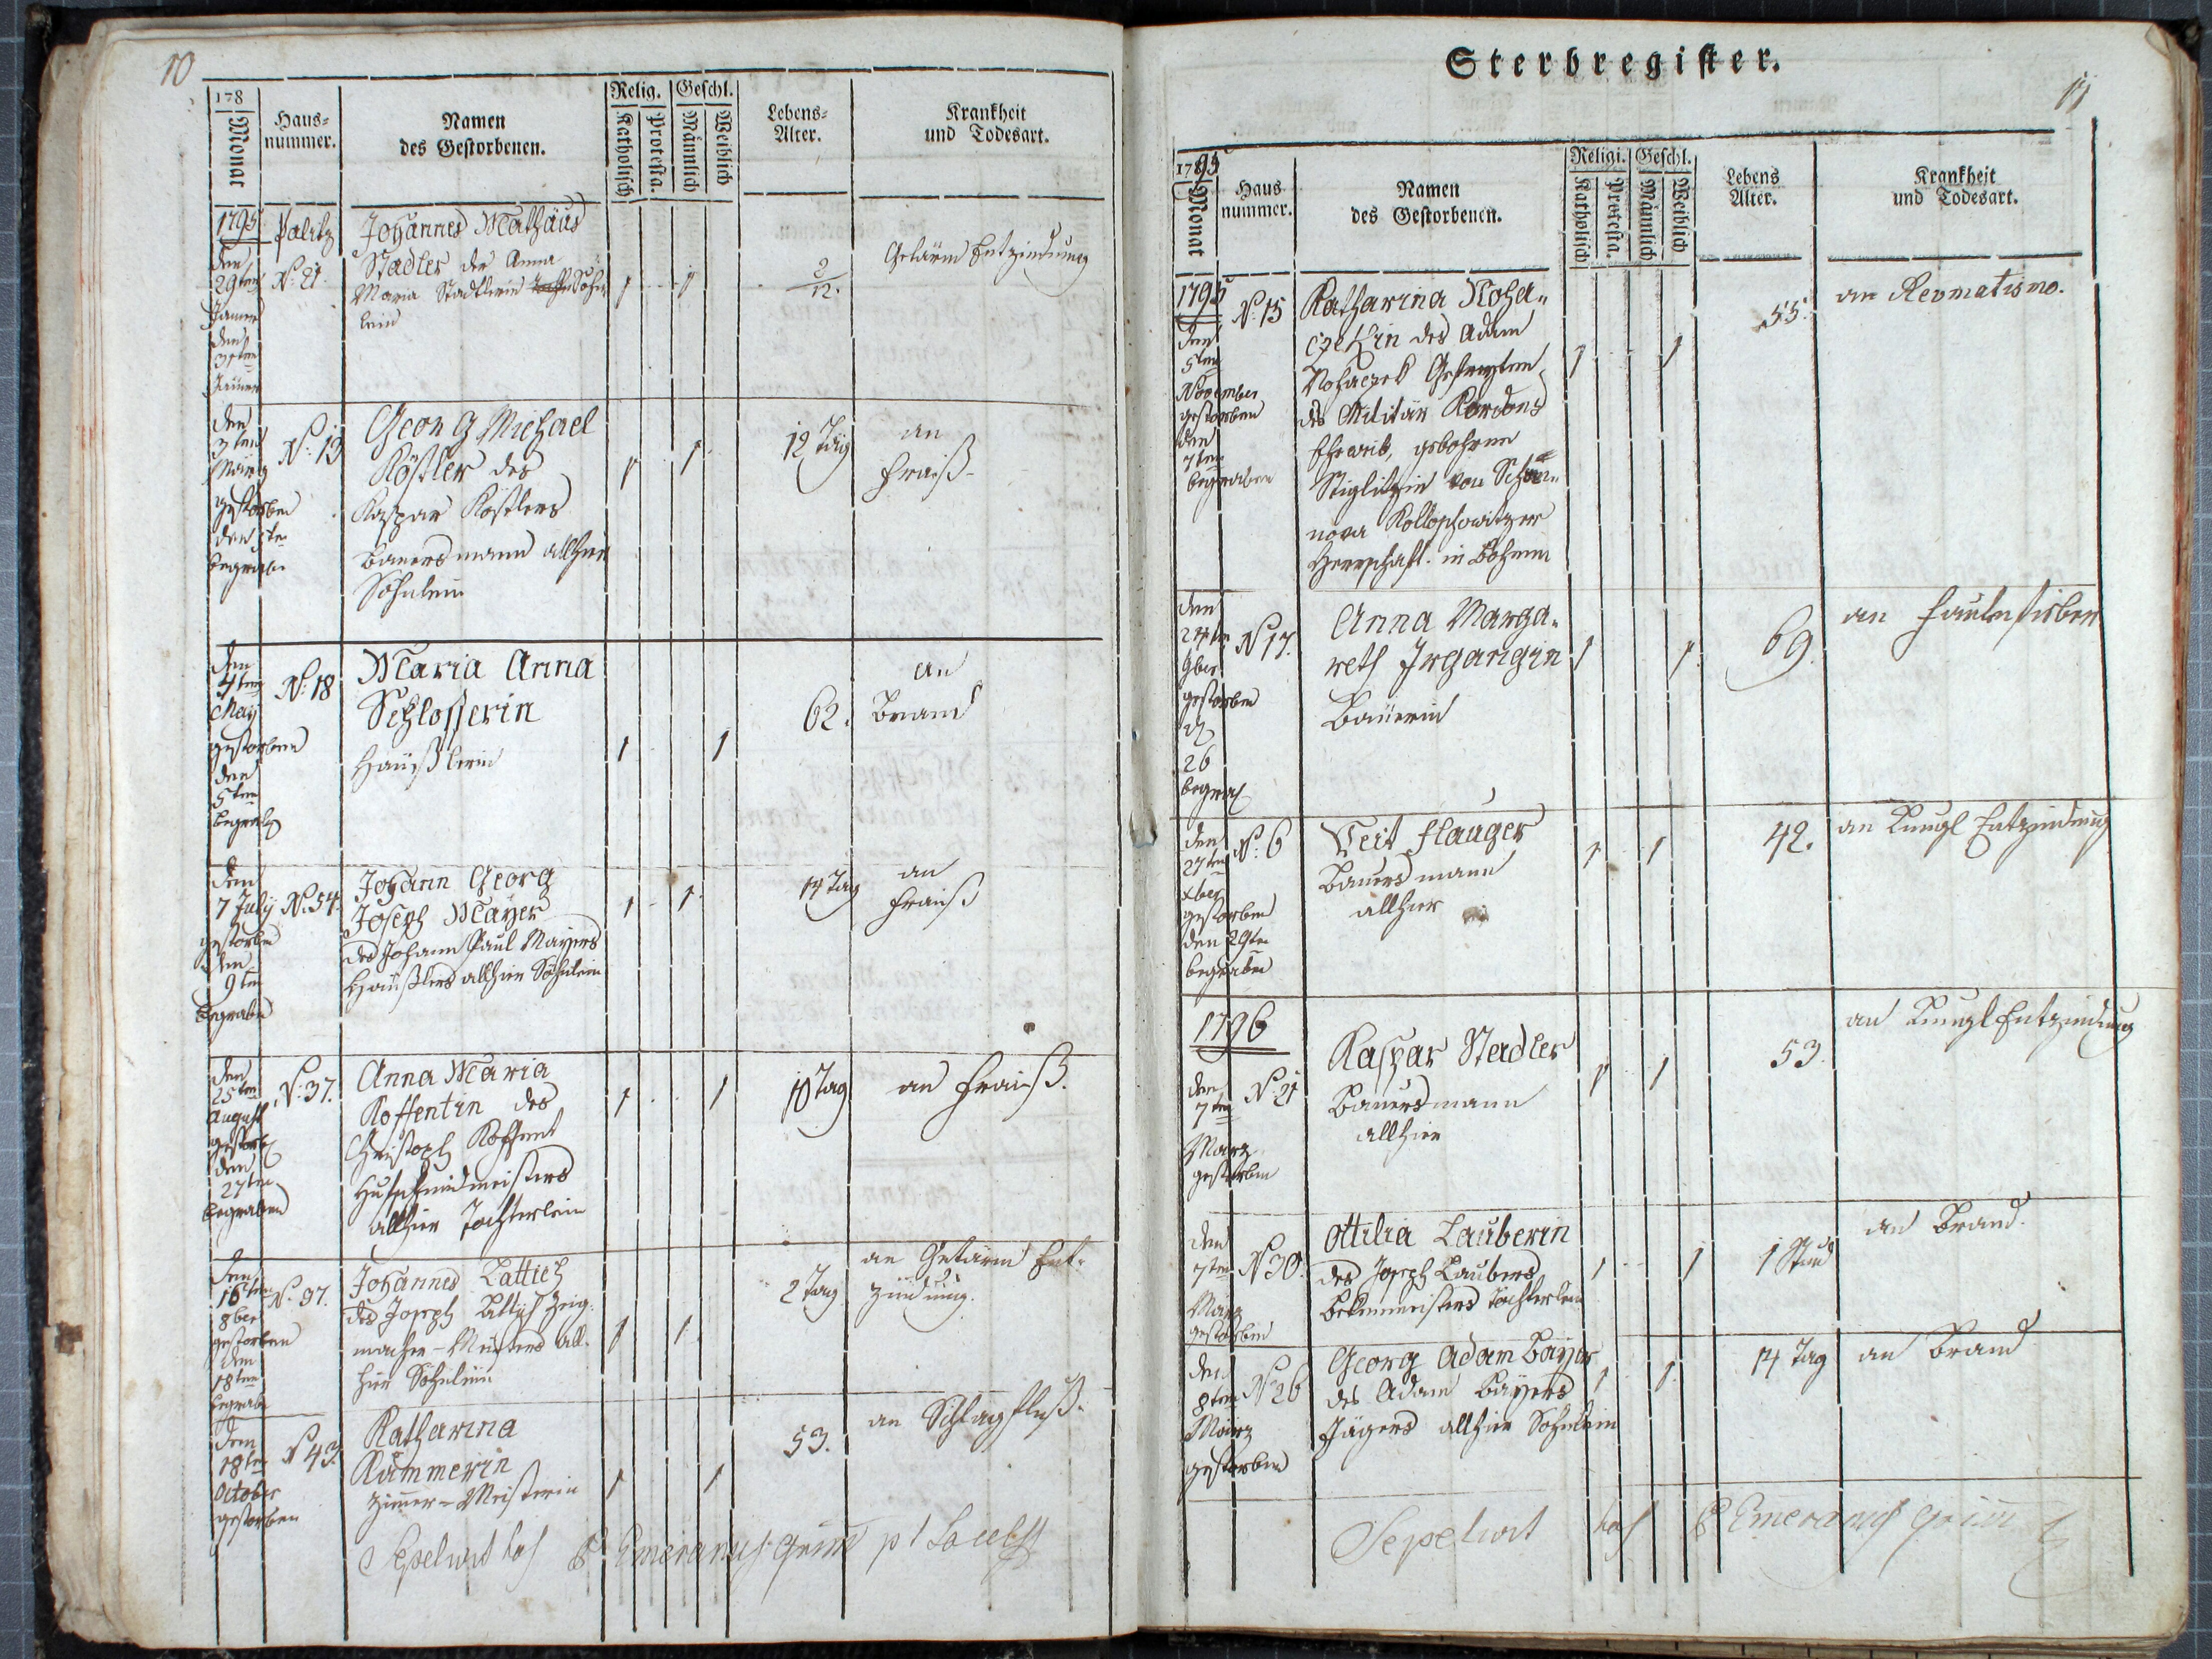 10
178
Monat
Haus=
nummer.
Namen
des Gestorbenen.
Relig.
Katholisch
Protesta.
Geschl.
Männlich
Weiblich
Lebens=
Alter.
Krankheit
und Todesart.
1795
Palitz
den
29ten
Jänner
den
31ten
Jänner
N: 21.
Johannes Mathäus
Stadler der Anna
Maria Stadtlerin Söhn
lein
1 1
2/12.
Gedärm Entzindung
den
3ten
März
gestorben
den 5te
begraben
N: 13
Georg Michael
Köstler des
Kaspar Köstlers
Bauersmann allhier
Söhnlein
1 1
12 Täg
an
Fraiß
den
4ten
May
gestorben
den
5ten
begrab
N: 18
Maria Anna
Schlosserin
Häußlerin
1 1
62.
an
Brand
den
7 July
gestorben
den
9ten
begraben
N: 54.
Johann Georg
Joseph Mayer
des Johann Paul Mayers
Häußlers allhier Söhnlein
1 1
14 Tag
an
Fraiß
den
25ten
August
gestorb
den
27ten
begraben
N: 37.
Anna Maria
Koffentin des
Christoph Koffent
Hufschmidmeisters
allhier Töchterlein
1 1
10 Tag
an Fraiß.
den
16ten
8ber
gestorben
den
18ten
begrab
N: 37.
Johannes Lattich
des Joseph Lattich Zeig
macher-Meisters all=
hier Söhnlein
1 1
2 Tag
an Gedärm Ent=
zündung.
den
18ten
October
gestorben
N 43.
Katharina
Kummerin
Zimer=Meisterin
1 1
53.
an Schlagfluß.
Sepelivit hos P Emeranus Grim
Sterbregister.
11
1795
Monat
Haus
nummer.
Namen
des Gestorbenen.
Religi.
Katholisch
Protesta.
Geschl.
Männlich
Weiblich
Lebens
Alter.
Krankheit
und Todesart.
1795
den
5ten
November
gestorben
den
7ten
begraben
N: 15
Katharina Noha=
czekin des Adam
Nohaczek Gefreyten
des Militär Kordons
Eheweib, gebohrne
Stiglitzin von Schön=
nova Kollopfowitzer
Herrschaft in Böhmen
1 1
55.
an Revmatismo.
den
24ten
9ber
gestorben
d
26
begrab
N 17.
Anna Marga=
reth Irgangin
Bäuerin
1 1.
69.
an Faulnfieber
den
27ten
xber
gestorben
den 29ten
begraben
N: 6
Veit Flauger
Bauersmann
allhier
1 1
42.
an Lungl Entzindung
1796
den
7ten
März
gestorben
N: 21
Kaspar Stadler
Bauersmann
allhier
1 1
53.
an Lungl Entzindung
den
7ten
März
gestorben
N 30.
Ottilia Lauberin
des Joseph Laubers
Bekenmeisters Töchterlein
1 1
1 Stund
an Brand.
den
8ten
März
gestorben
N 26
Georg Adam Bayer
des Adam Bayers
Jägers allhier Söhnlein
1 1
14 Tag
an Brand
Sepelivit hos P Emeranus Grim